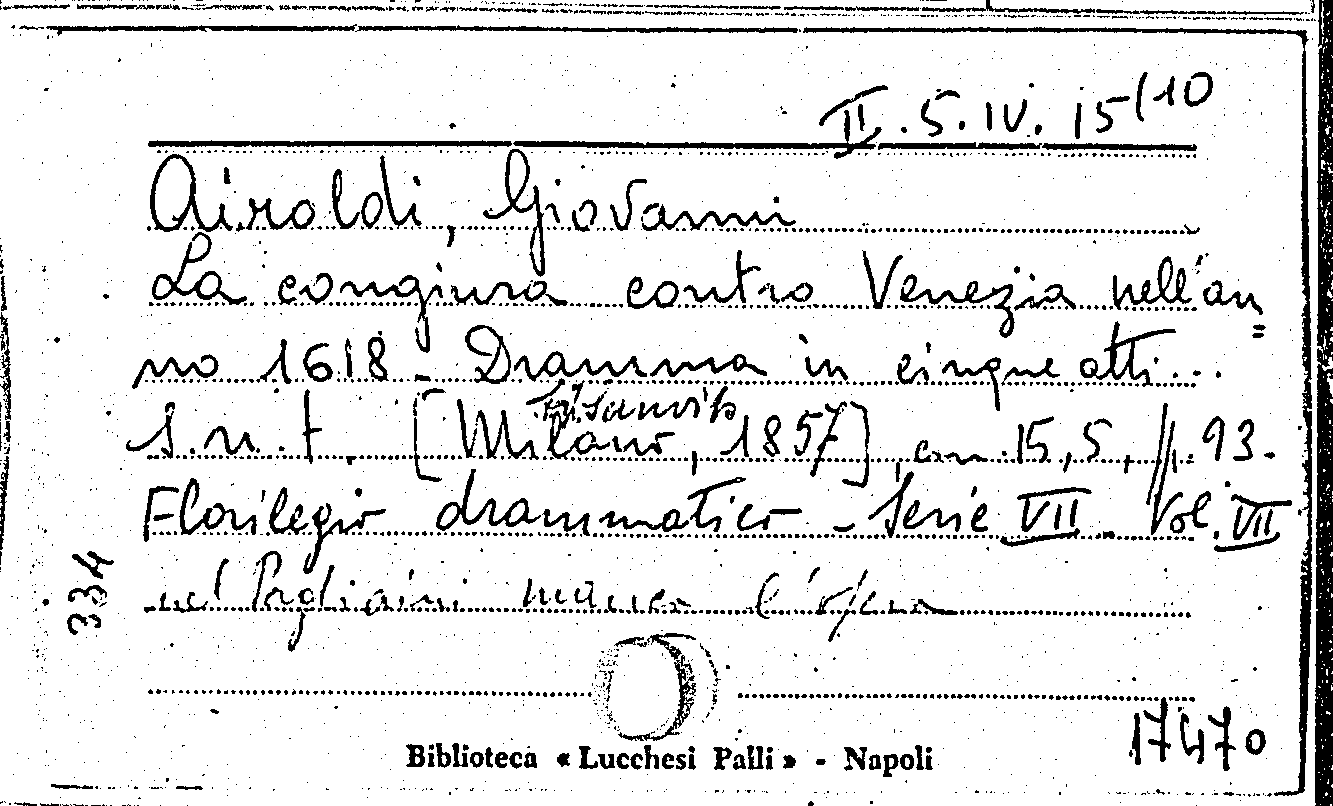 II. 5. IV. 15/10
Airoldi, Giovanni
La congiura contro Venezia nell'an=
no 1618 - Dramma in cinque atti...
Fr. Sanvito
s.n.t. [Milano, 1857], cm. 15,5, pp. 93.
Florilegio drammatico - Serie VII - Vol. VII
nel Pagliaini manca l'opera
334
17470
Biblioteca « Lucchesi Palli » - Napoli